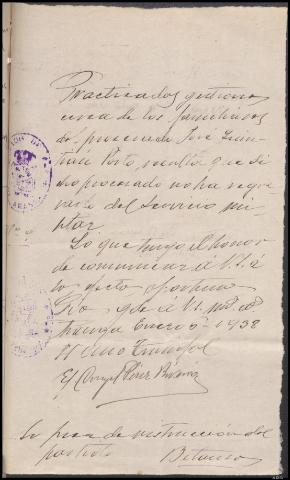 Practicadas gestiones
cerca de los familiares
del procesado José Quin-
tián Porto, resulta que di-
cho procesado no ha regre-
sado del servicio mi-
litar
Lo que tengo el honor
de comunicar á V. I. á
los efectos oportunos
Dios gde á V. I. m. a.
Enero 5 - 1938
II Año Triunfal
El
Angel Pérez
Sr. Juez de instrucción del
partido Betanzos